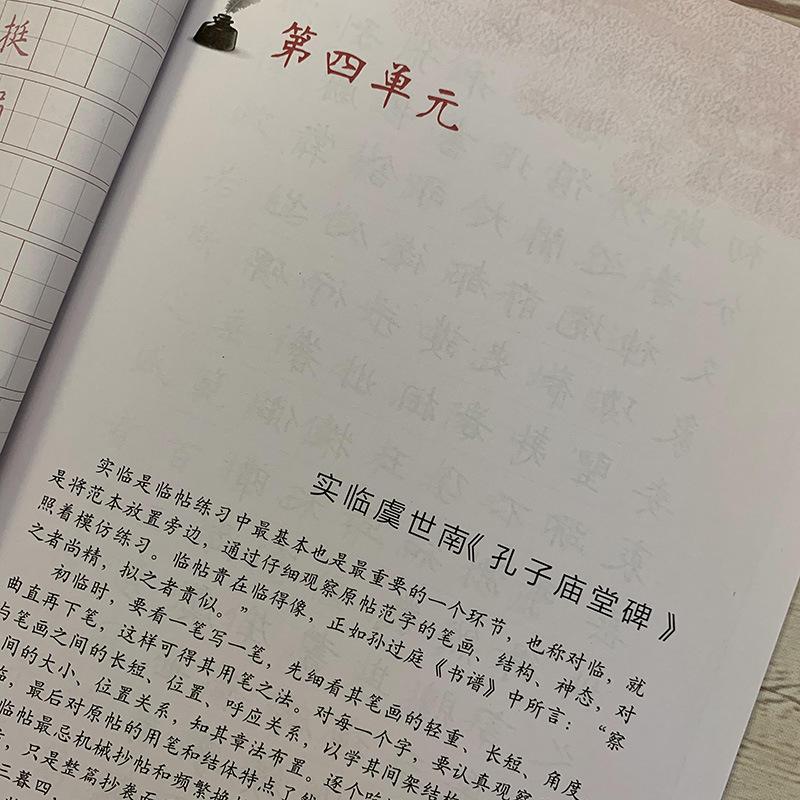 挺
第四单元
实临虞世南《孔子庙堂碑》
实临是临帖练习中最基本也是最重要的一个环节，也称对临，就
是将范本放置旁边，通过仔细观察原帖范字的笔画、结构、神态，对
照着模仿练习。临帖贵在临得像，正如孙过庭《书谱》中所言：“察
之者尚精，拟之者贵似。”
初临时，要看一笔写一笔，先细看其笔画的轻重、长短、角度
曲直再下笔，这样可得其用笔之法。对每一个字，要认真观察
与笔画之间的长短、位置、呼应关系，以学其间架结构
间的大小、位置关系，知其章法布置。逐个
临，最后对原帖的用笔和结体特点了
临帖最忌机械抄帖和频繁换
，只是整篇抄袭
三暮四，